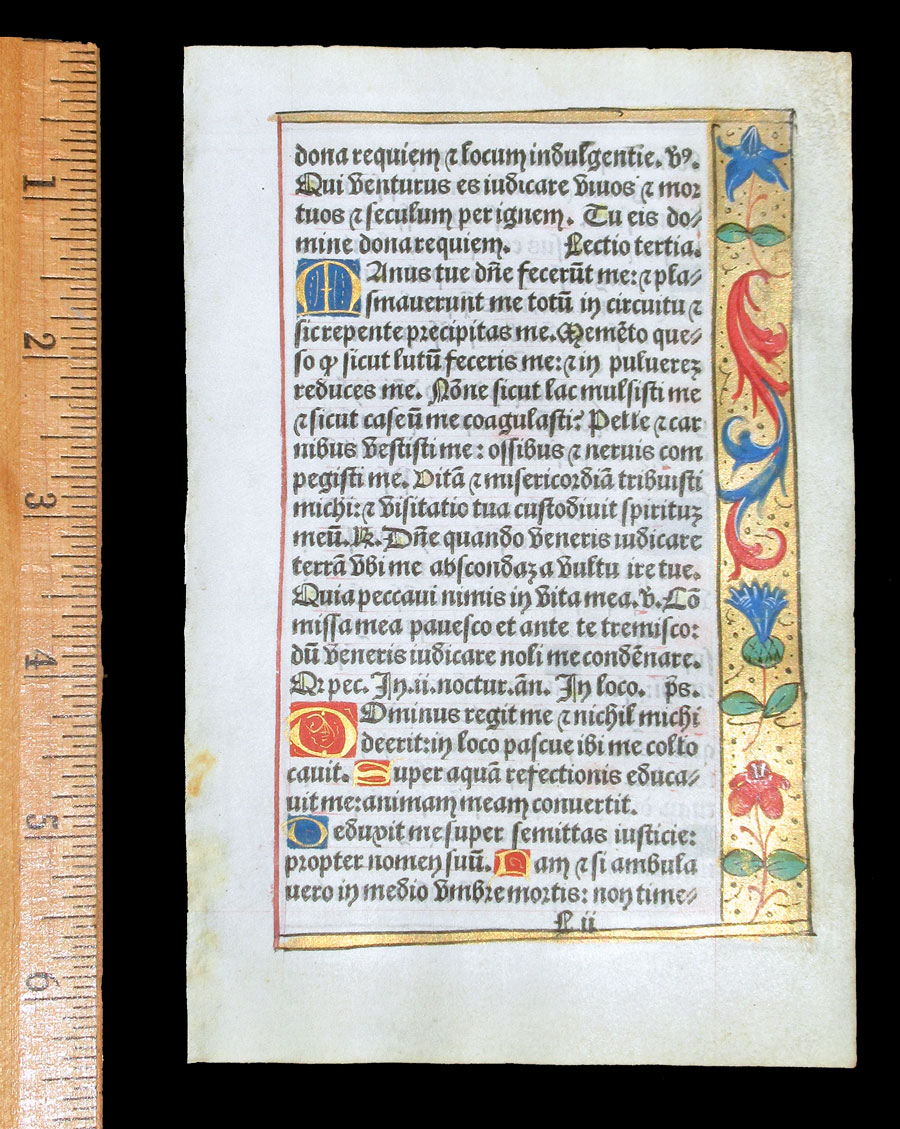 1
2
3
4
5
6
dona requiem ⁊ locum indulgentie. v̾.
Qui venturus es iudicare viuos ⁊ mor
tuos ⁊ seculum per ignem. Tu eis do⸗
mine dona requiem. Lectio tertia.
MAnus tue dn̄e fecerūt me: ⁊ pla⸗
smauerunt me totū in circuitu ⁊
sic repente precipitas me. Memēto que⸗
so ꝙ sicut lutū feceris me: ⁊ in puluereꝫ
reduces me. Nōne sicut lac mulsisti me
⁊ sicut caseū me coagulasti? Pelle ⁊ car
nibus vestisti me: ossibus ⁊ neruis com
pegisti me. Vitā ⁊ misericordiā tribuisti
michi: ⁊ visitatio tua custodiuit spirituꝫ
meū. R̸. Dn̄e quando veneris iudicare
terrā vbi me abscondaꝫ a vultu ire tue.
Quia peccaui nimis in vita mea. v. Cō
missa mea pauesco et ante te tremisco:
dū veneris iudicare noli me condēnare.
Qr pec. In .ii. noctur. ān. In loco. p̄s.
DOminus regit me ⁊ nichil michi
deerit: in loco pascue ibi me collo
cauit. Super aquā refectionis educa⸗
uit me: animam meam conuertit.
Deduxit me super semittas iusticie:
propter nomen suū. Nam ⁊ si ambula
uero in medio vmbre mortis: non time⸗
L ii